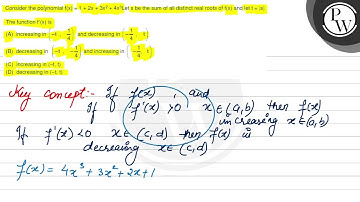 Consider the polynomial f(x) = 1 + 2x + 3x² + 4x³ Let s be the sum of all distinct real roots of f(x) and let t = |s|
The function f'(x) is
(A) increasing in (-t, -1/4) and decreasing in (-1/4, t)
(B) decreasing in (-t, -1/4) and increasing in (-1/4, t)
(C) increasing in (-t, t)
(D) decreasing in (-t, t)
PW
Key concept:- If f(x) , and
If f'(x) > 0 x ∈ (a, b) then f(x)
increasing x ∈ (a, b)
If f'(x) < 0 x ∈ (c, d) then f(x) is
decreasing x ∈ (c, d)
f(x) = 4x³ + 3x² + 2x + 1